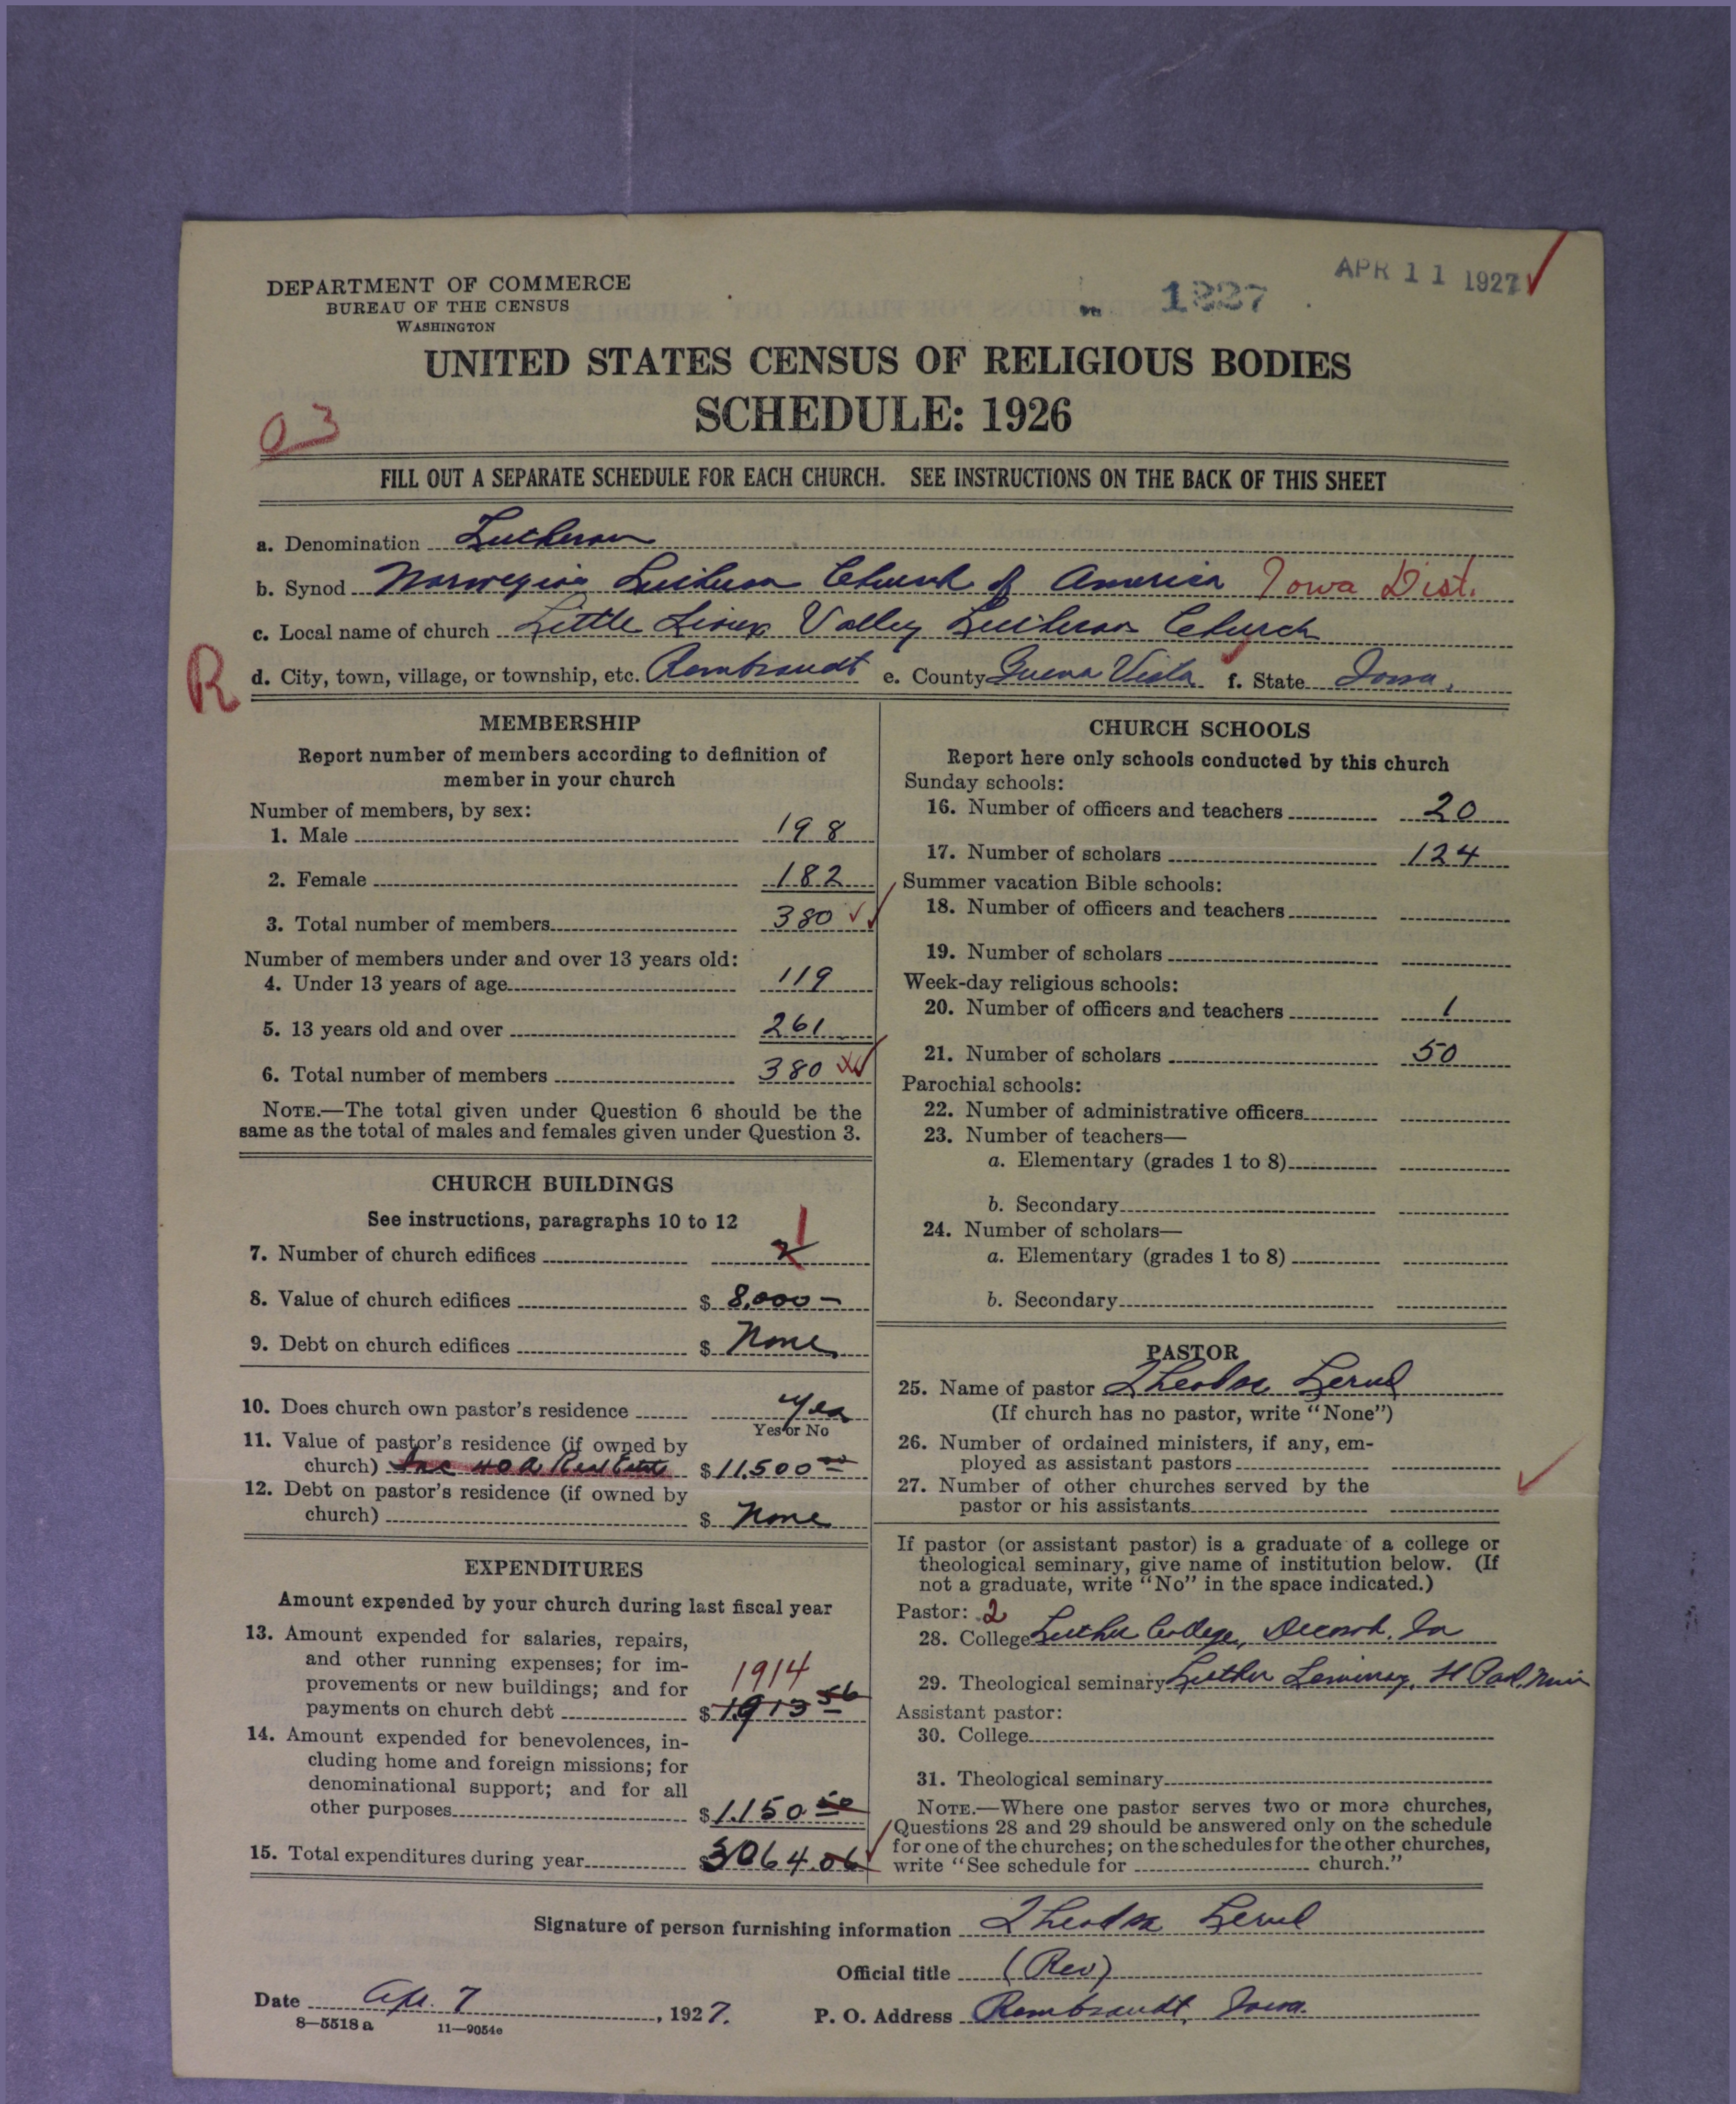 DEPARTMENT OF COMMERCE
BUREAU OF THE CENSUS
WASHINGTON
1227
APR 11 1927
UNITED STATES CENSUS OF RELIGIOUS BODIES
SCHEDULE: 1926
03
FILL OUT A SEPARATE SCHEDULE FOR EACH CHURCH. SEE INSTRUCTIONS ON THE BACK OF THIS SHEET
a. Denomination Lutheran
b. Synod Norwegian Lutheran Church of America Iowa Dist.
c. Local name of church Little Sioux Valley Lutheran Church
R
d. City, town, village, or township, etc. Rembrandt e. County Buena Vista f. State Iowa.
MEMBERSHIP
Report number of members according to definition of
member in your church
Number of members, by sex:
1. Male 198
2. Female 182
3. Total number of members 380
Number of members under and over 13 years old:
4. Under 13 years of age 119
5. 13 years old and over 261
6. Total number of members 380
NOTE.—The total given under Question 6 should be the
same as the total of males and females given under Question 3.
CHURCH BUILDINGS
See instructions, paragraphs 10 to 12
7. Number of church edifices 2 1
8. Value of church edifices $ 8,000 –
9. Debt on church edifices $ None
10. Does church own pastor's residence Yes
Yes or No
11. Value of pastor's residence (if owned by
church) Inc 40 a Real Estate $ 11,500 00
12. Debt on pastor's residence (if owned by
church) $ None
EXPENDITURES
Amount expended by your church during last fiscal year
13. Amount expended for salaries, repairs,
and other running expenses; for im-
provements or new buildings; and for 1914
payments on church debt $ 1913 56
14. Amount expended for benevolences, in-
cluding home and foreign missions; for
denominational support; and for all
other purposes $ 1,150 50
15. Total expenditures during year $ 3064.06
CHURCH SCHOOLS
Report here only schools conducted by this church
Sunday schools:
16. Number of officers and teachers 20
17. Number of scholars 124
Summer vacation Bible schools:
18. Number of officers and teachers
19. Number of scholars
Week-day religious schools:
20. Number of officers and teachers 1
21. Number of scholars 50
Parochial schools:
22. Number of administrative officers
23. Number of teachers—
a. Elementary (grades 1 to 8)
b. Secondary
24. Number of scholars—
a. Elementary (grades 1 to 8)
b. Secondary
PASTOR
25. Name of pastor Theodor
(If church has no pastor, write "None")
26. Number of ordained ministers, if any, em-
ployed as assistant pastors
27. Number of other churches served by the
pastor or his assistants
If pastor (or assistant pastor) is a graduate of a college or
theological seminary, give name of institution below. (If
not a graduate, write "No" in the space indicated.)
Pastor: 2
28. College Luther College, Decorah, Ia
29. Theological seminary Luther Seminary, St Paul, Minn
Assistant pastor:
30. College
31. Theological seminary
NOTE.—Where one pastor serves two or more churches,
Questions 28 and 29 should be answered only on the schedule
for one of the churches; on the schedules for the other churches,
write "See schedule for church."
Signature of person furnishing information Theodor
Official title (Rev)
Date Apr. 7, 1927. P. O. Address Rembrandt, Iowa.
8—5518 a 11—9054e